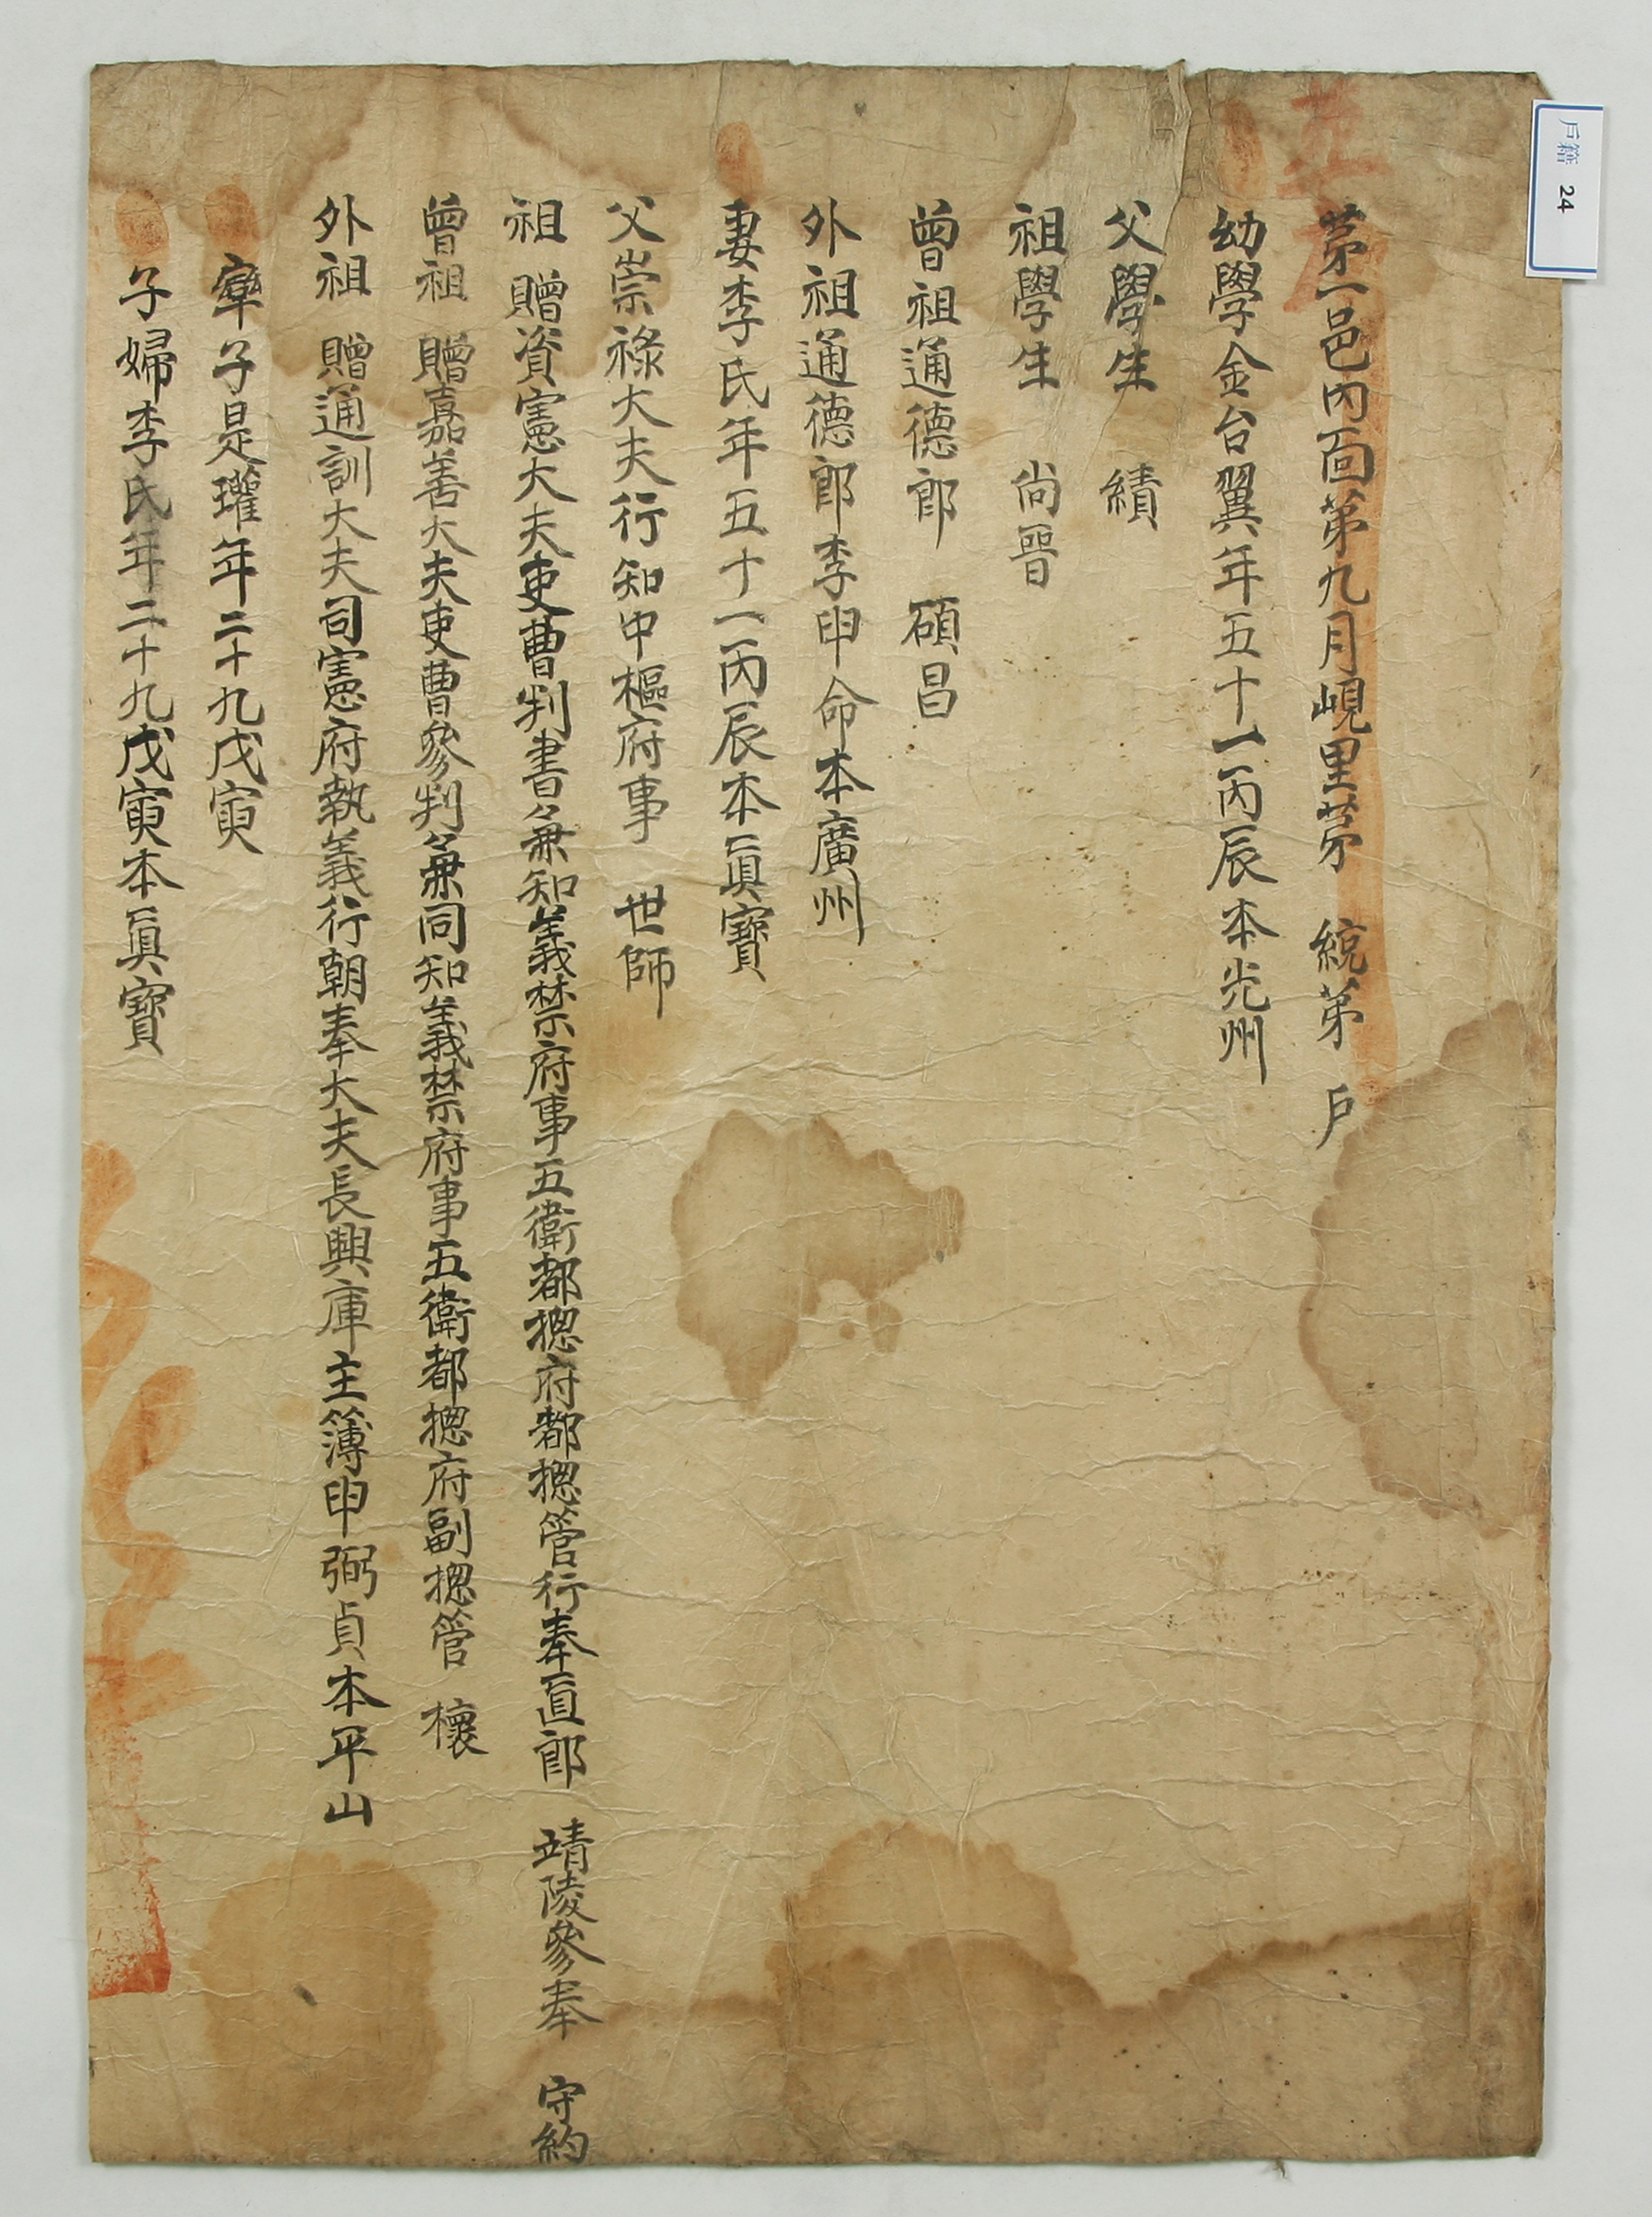 第一邑內面第九月峴里第 統第 戶
幼學金台翼年五十一丙辰本光州
父學生 績
祖學生 尙晉
曾祖通德郎 碩昌
外祖通德郎李申命本廣州
妻李氏年五十一丙辰本眞寶
父崇祿大夫行知中樞府事 世師
祖 贈資憲大夫吏曹判書兼知義禁府事五衛都摠府都摠管行奉直郎 靖陵參奉 守約
曾祖 贈嘉善大夫吏曹參判兼同知義禁府事五衛都摠府副摠管 櫰
外祖 贈通訓大夫司憲府執義行朝奉大夫長興庫主簿申弼貞本平山
率子是瓘年二十九戊寅
子婦李氏年二十九戊寅本眞寶
戶籍 24